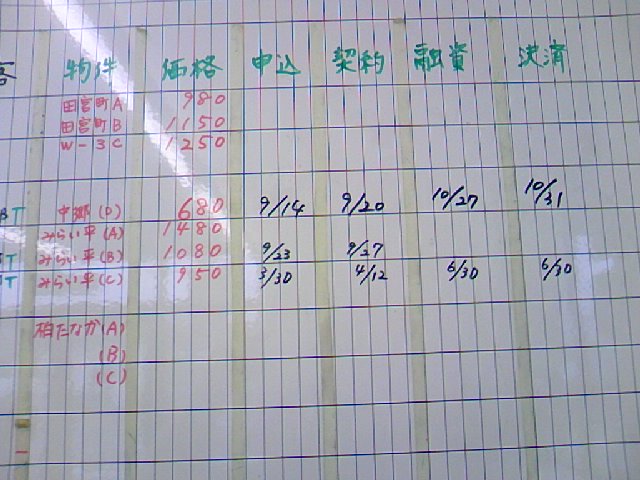 客 物件 価格 申込 契約 融資 決済
田宮町A 980
田宮町B 1150
W-3C 1250
BT 中郷(D) 680 9/14 9/20 10/27 10/31
みらい平(A) 1480
T みらい平(B) 1080 9/23 9/27
T みらい平(C) 950 3/30 4/12 6/30 6/30
柏たなか(A)
(B)
(C)